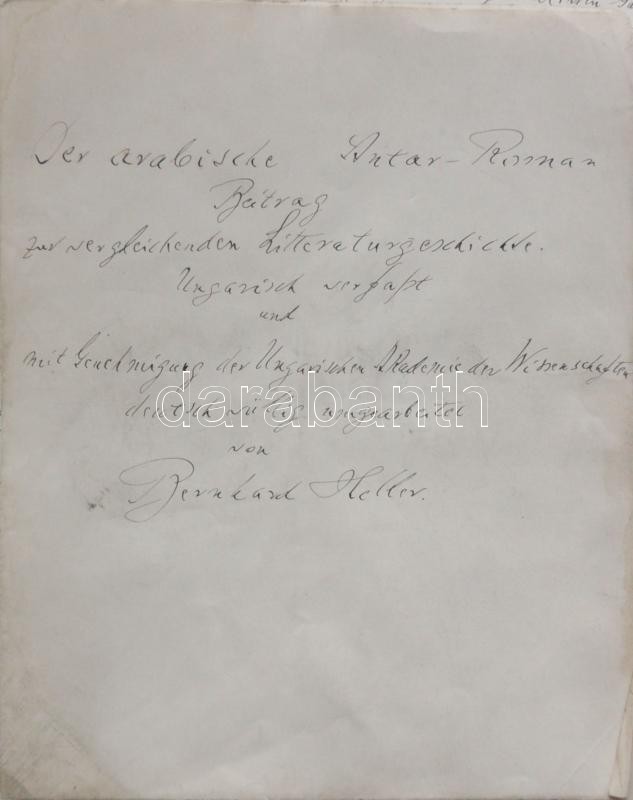 Der arabische Antar-Roman
Beitrag
zur vergleichenden Litteraturgeschichte.
Ungarisch verfaßt
und
mit Genehmigung der Ungarischen Akademie der Wissenschaften
darabanth
deutsch umgearbeitet
von
Bernhard Heller.